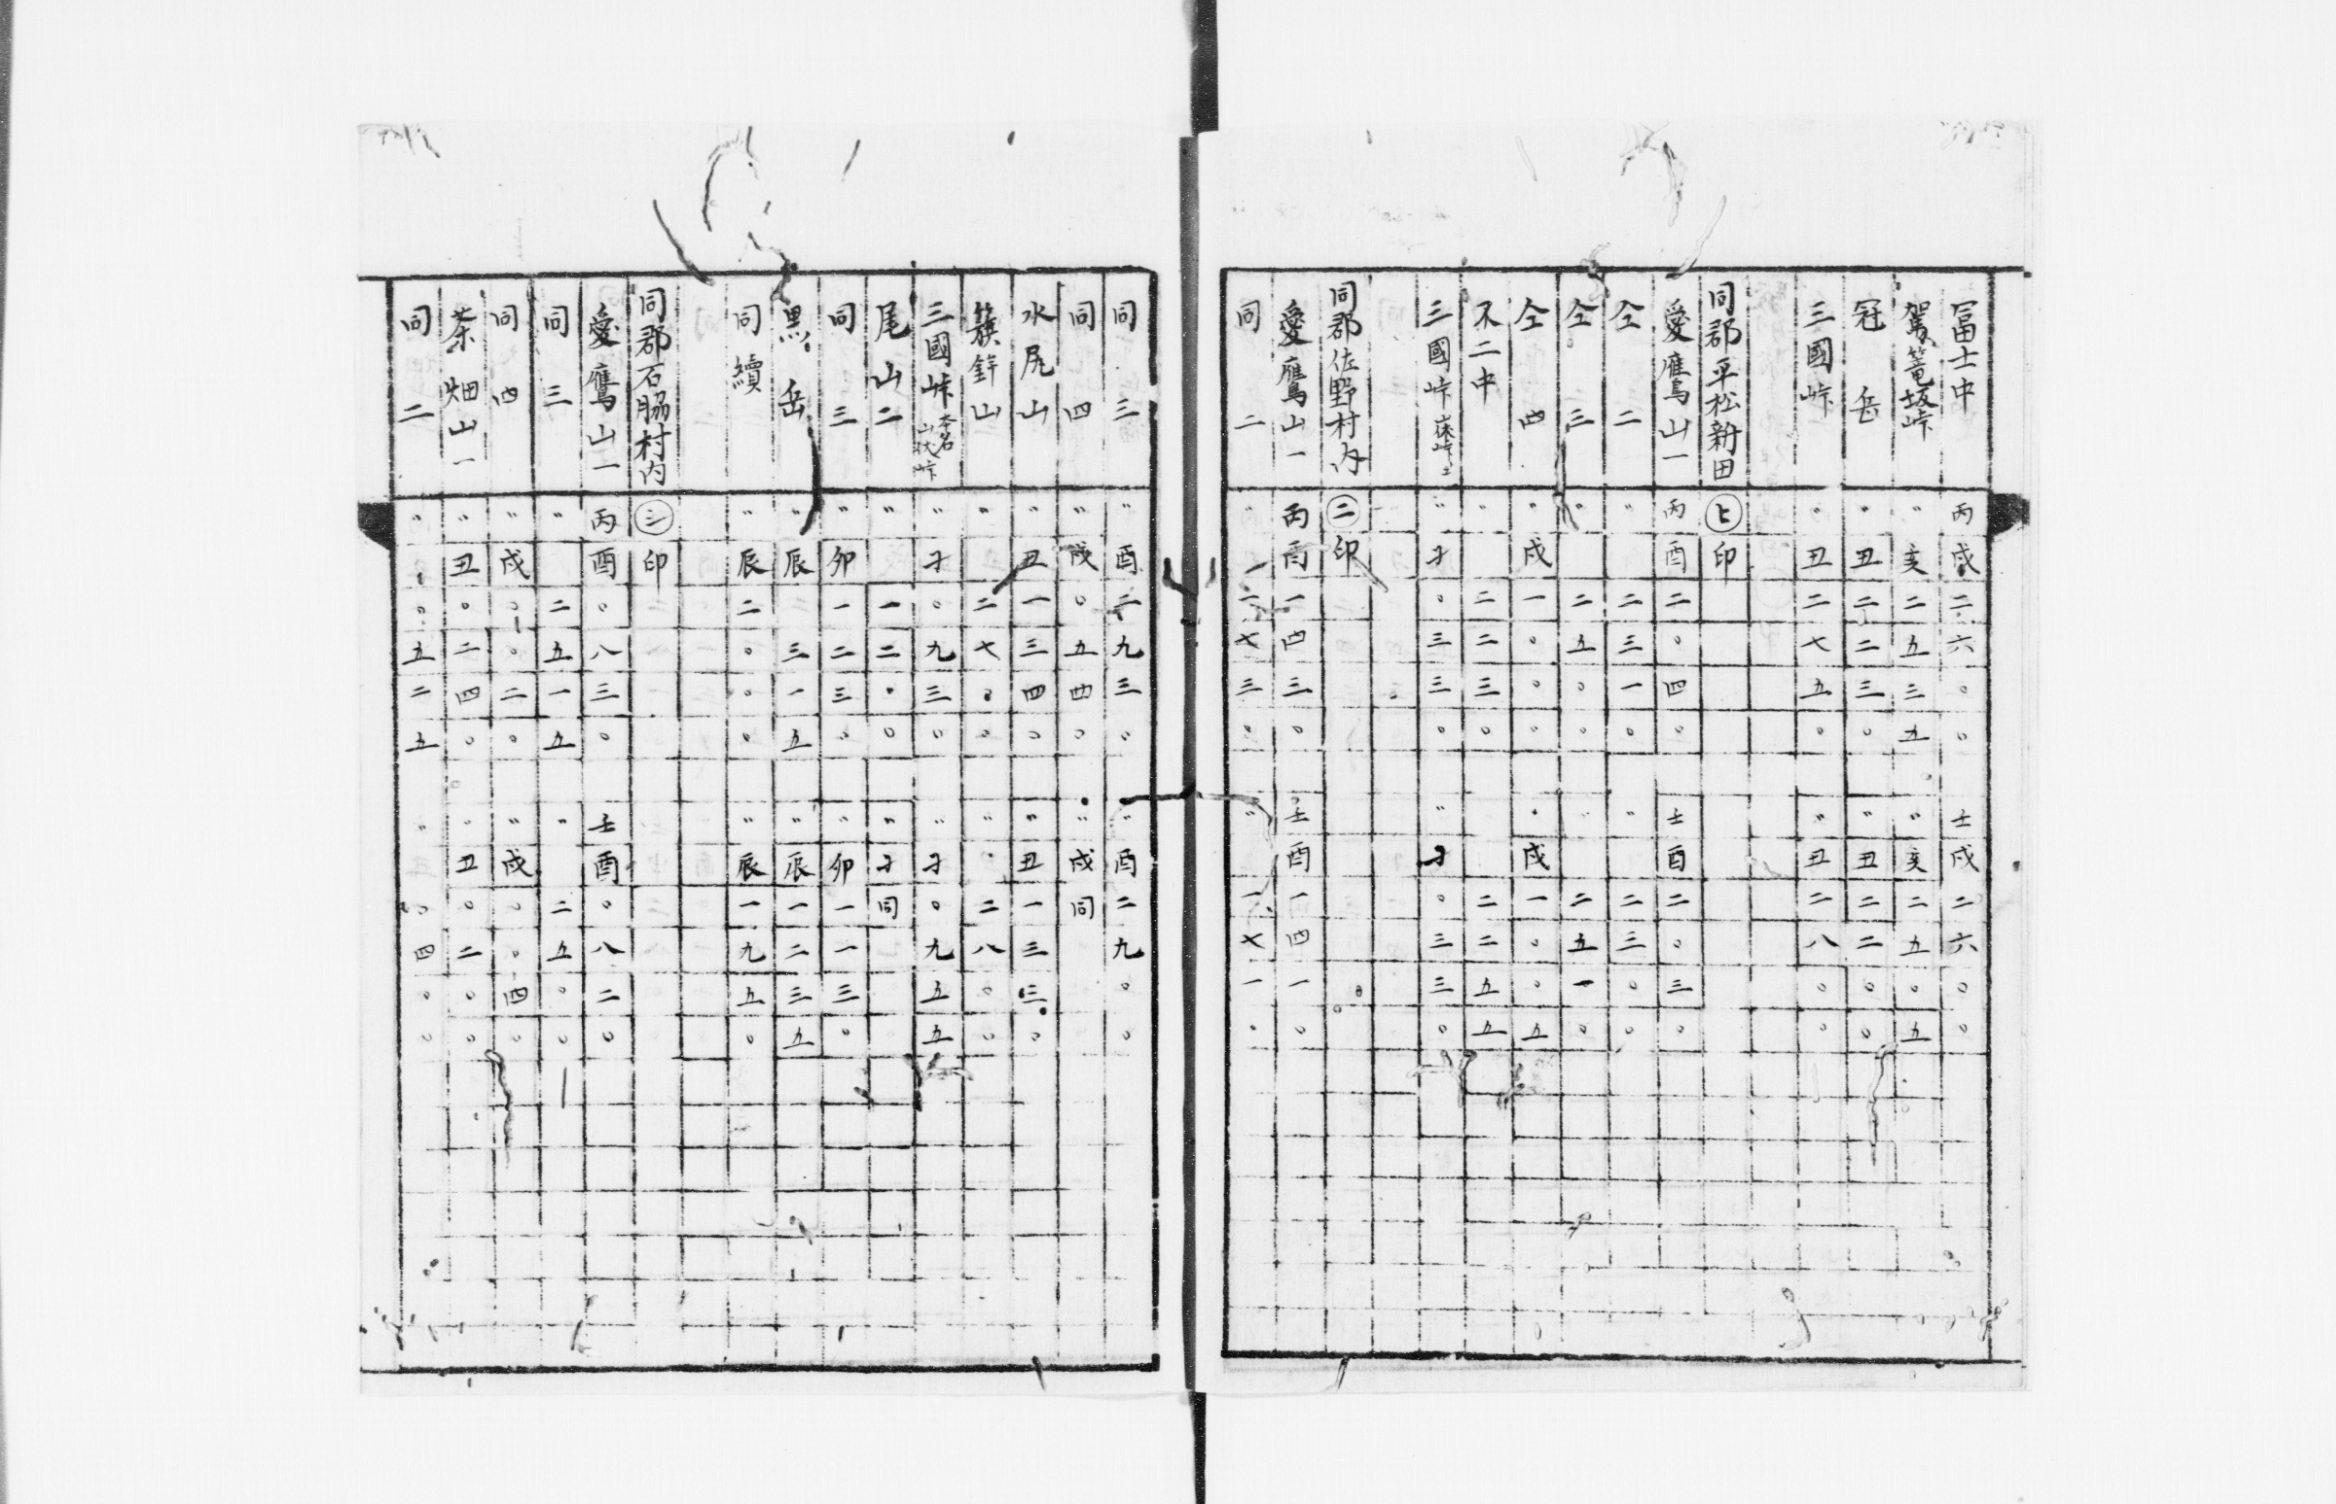 冨士中 丙戌二六〇〇 壬戌二六〇〇
駕篭坂峠 〃亥二五三五 〃亥二五〇五
冠岳 〃丑二二三〇 〃丑二二〇〇
三國峠 〃丑二七五〇 〃丑二八〇〇
同郡平松新田 ㊤印
愛鷹山一 丙酉二〇四〇 壬酉二〇三〇
仝二 〃二三一〇 〃二三〇〇
仝三 〃二五〇〇 〃二五一〇
仝四 〃戌一〇〇〇 〃戌一〇〇五
不二中 二二三〇 二二五五
三國峠 〃子〇三三〇 〃子〇三三〇
同郡佐野村内 ㊁印
愛鷹山一 丙酉一四三〇 壬酉一四一〇
同二 〃〃二七三〇 〃
同三 〃酉二九三〇 〃酉二九〇〇
同四 〃戌〇五四〇 〃戌同
水尻山 〃丑一三四〇 〃丑一三三〇
簱鉾山 〃二七〇〇 〃二八〇〇
三國峠 本名山伏峠 〃子〇九三〇 〃子〇九五五
尾山二 〃一二〇〇 〃子同
同三 〃卯一二三〇 〃卯一一三〇
黒岳 〃辰 三一五 〃辰一二三五
同續 〃辰二〇〇〇 〃辰一九五〇
同郡石脇村内 ㊂印
愛鷹山一 丙酉〇八三〇 壬酉〇八二〇
同三 〃二五一五 〃二五〇〇
同四 〃戌〇〇二〇 〃戌〇〇四〇
茶畑山一 〃丑〇二四〇 〃丑〇二〇〇
同二 〃〃〇五二五 〃〇四〇〇